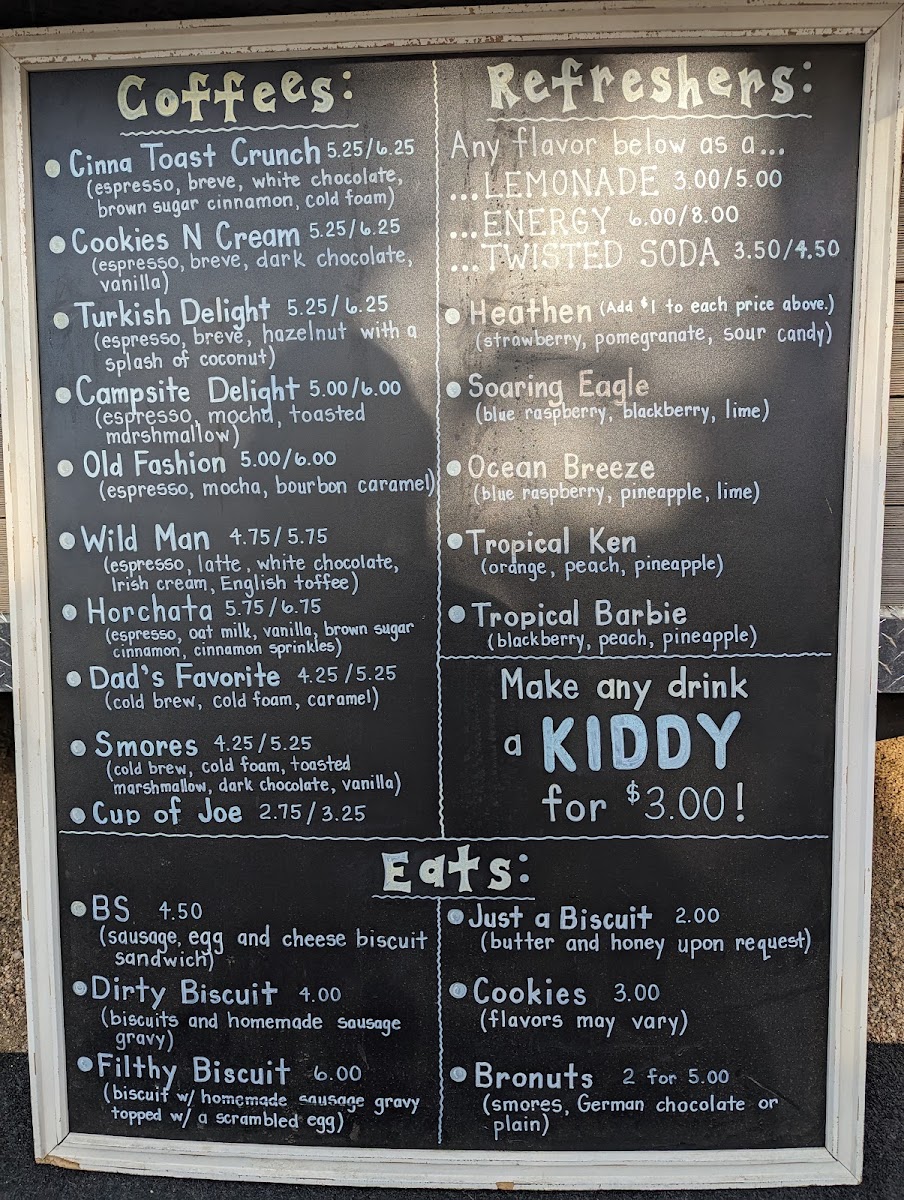 Coffees:
Cinna Toast Crunch 5.25/6.25
(espresso, breve, white chocolate,
brown sugar cinnamon, cold foam)
Cookies N Cream 5.25/6.25
(espresso, breve, dark chocolate,
vanilla)
Turkish Delight 5.25/6.25
(espresso, breve, hazelnut with a
splash of coconut)
Campsite Delight 5.00/6.00
(espresso, mocha, toasted
marshmallow)
Old Fashion 5.00/6.00
(espresso, mocha, bourbon caramel)
Wild Man 4.75/5.75
(espresso, latte, white chocolate,
Irish cream, English toffee)
Horchata 5.75/6.75
(espresso, oat milk, vanilla, brown sugar
cinnamon, cinnamon sprinkles)
Dad's Favorite 4.25/5.25
(cold brew, cold foam, caramel)
Smores 4.25/5.25
(cold brew, cold foam, toasted
marshmallow, dark chocolate, vanilla)
Cup of Joe 2.75/3.25
Refreshers:
Any flavor below as a...
...LEMONADE 3.00/5.00
...ENERGY 6.00/8.00
...TWISTED SODA 3.50/4.50
Heathen (Add $1 to each price above.)
(strawberry, pomegranate, sour candy)
Soaring Eagle
(blue raspberry, blackberry, lime)
Ocean Breeze
(blue raspberry, pineapple, lime)
Tropical Ken
(orange, peach, pineapple)
Tropical Barbie
(blackberry, peach, pineapple)
Make any drink
a KIDDY
for $3.00!
Eats:
BS 4.50
(sausage, egg and cheese biscuit
sandwich)
Dirty Biscuit 4.00
(biscuits and homemade sausage
gravy)
Filthy Biscuit 6.00
(biscuit w/ homemade sausage gravy
topped w/ a scrambled egg)
Just a Biscuit 2.00
(butter and honey upon request)
Cookies 3.00
(flavors may vary)
Bronuts 2 for 5.00
(smores, German chocolate or
plain)